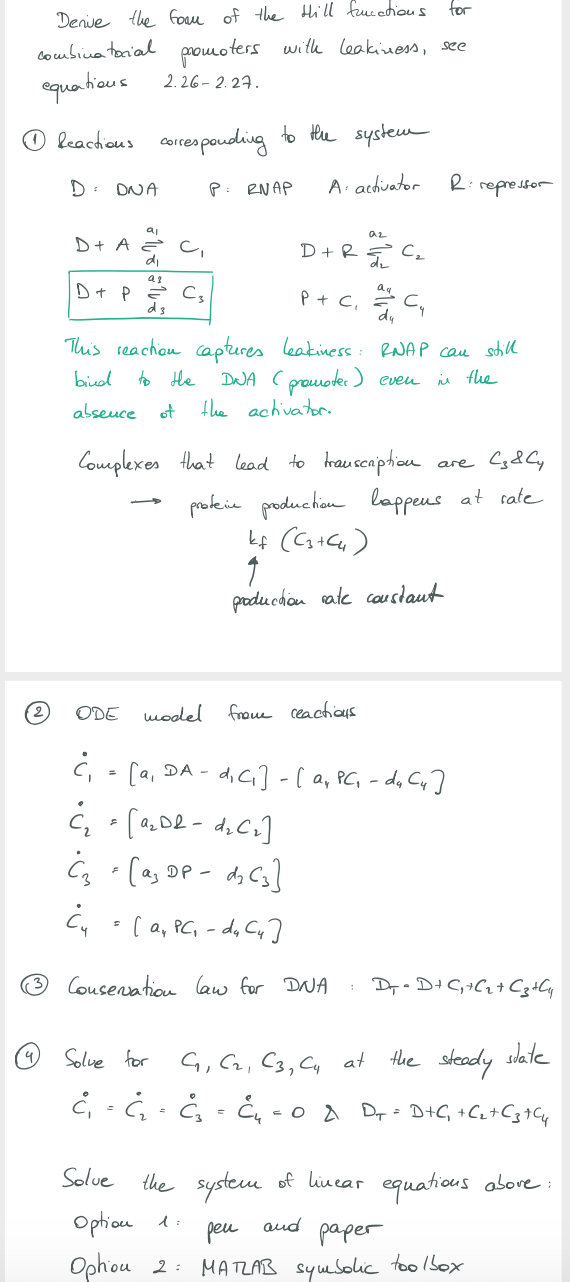 Derive the form of the Hill functions for
combinatorial promoters with leakiness, see
equations 2.26-2.27.
① Reactions corresponding to the system
D: DNA P: RNAP A: activator R: repressor
D + A ⇌ C₁ a₁ d₁ D + R ⇌ C₂ a₂ d₂
D + P ⇌ C₃ a₃ d₃ P + C₁ ⇌ C₄ a₄ d₄
This reaction captures leakiness: RNAP can still
bind to the DNA (promoter) even in the
absence of the activator.
Complexes that lead to transcription are C₃&C₄
→ protein production happens at rate
kf (C₃+C₄)
↑
production rate constant
② ODE model from reactions
Ċ₁ = [a₁ DA - d₁C₁] - [a₄ PC₁ - d₄ C₄]
Ċ₂ = [a₂DR - d₂C₂]
Ċ₃ = [a₃ DP - d₃ C₃]
Ċ₄ = [a₄ PC₁ - d₄ C₄]
③ Conservation law for DNA : D_T = D+C₁+C₂+C₃+C₄
④ Solve for C₁, C₂, C₃, C₄ at the steady state
Ċ₁ = Ċ₂ = Ċ₃ = Ċ₄ = 0 & D_T = D+C₁+C₂+C₃+C₄
Solve the system of linear equations above:
Option 1: pen and paper
Option 2: MATLAB symbolic toolbox